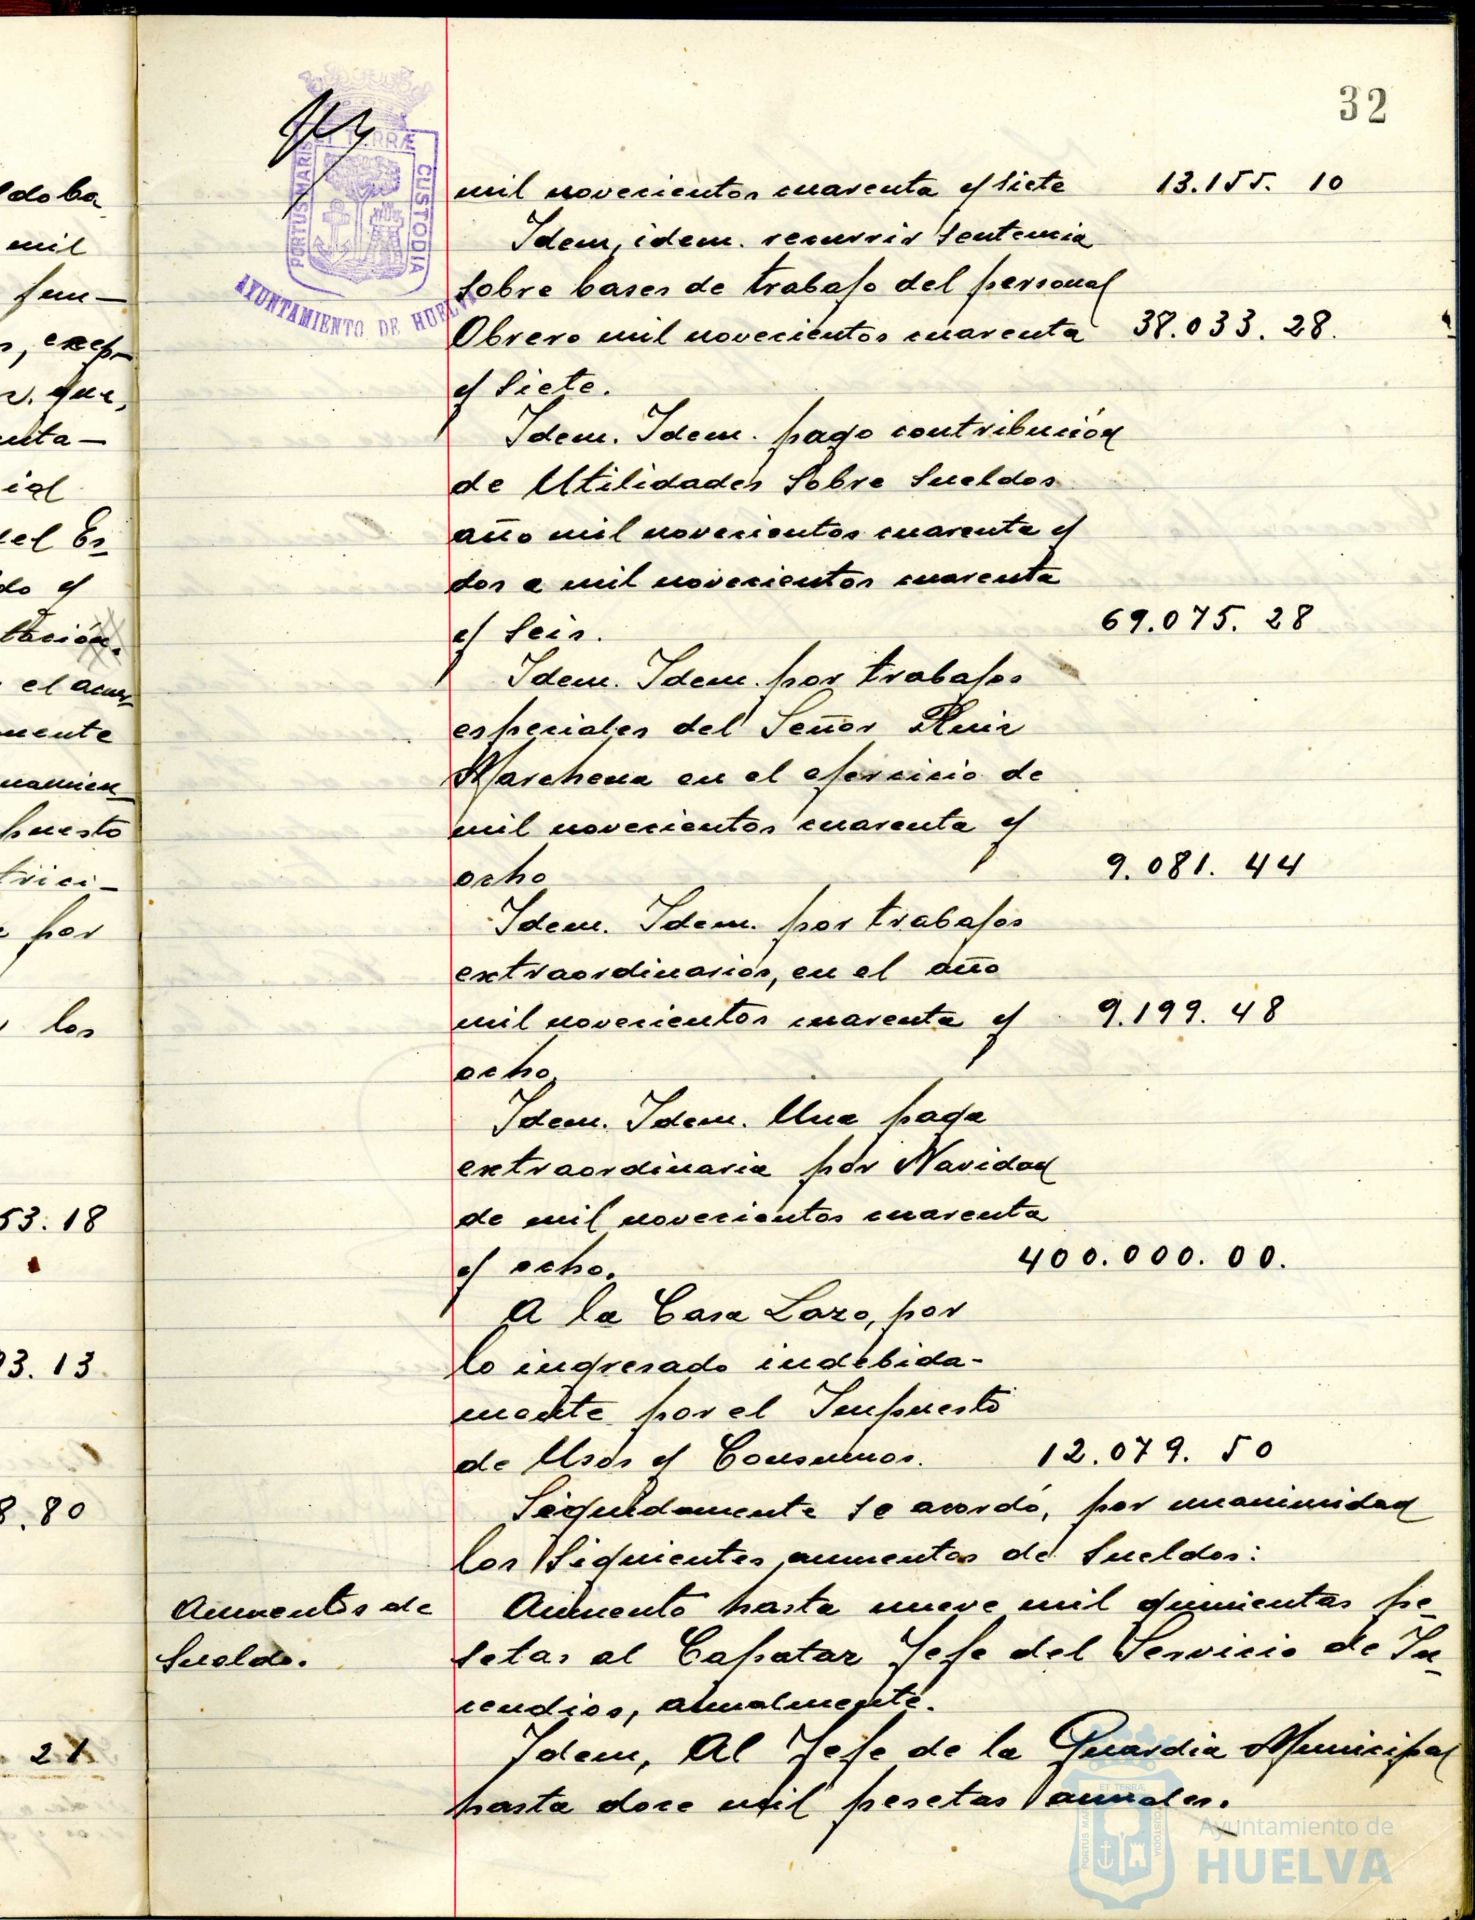 32
PORTUS MARIS ET TERRÆ CUSTODIA
AYUNTAMIENTO DE HUELVA
do ba
mil
fun-
s, excep-
que,
enta-
ial
el Es-
do y
tación.
el acuer-
mente
namien-
puesto
trici-
por
los
53.18
93.13
8.80
21
mil novecientos cuarenta y siete 13.155. 10
Idem, idem. recurrir sentencia
sobre bases de trabajo del personal
Obrero mil novecientos cuarenta 38.033. 28.
y siete.
Idem. Idem. pago contribución
de Utilidades sobre sueldos
año mil novecientos cuarenta y
dos a mil novecientos cuarenta
y seis. 69.075. 28
Idem. Idem. por trabajos
especiales del Señor Ruiz
Marchena en el ejercicio de
mil novecientos cuarenta y
ocho 9.081. 44
Idem. Idem. por trabajos
extraordinarios, en el año
mil novecientos cuarenta y 9.199. 48
ocho.
Idem. Idem. Una paga
extraordinaria por Navidad
de mil novecientos cuarenta
y ocho. 400.000.00.
A la Casa Lazo, por
lo ingresado indebida-
mente por el Impuesto
de Usos y Consumos. 12.079. 50
Seguidamente se acordó, por unanimidad
los siguientes aumentos de sueldos:
Aumentos de
sueldo.
Aumento hasta nueve mil quinientas pe-
setas al Capataz Jefe del Servicio de In-
cendios, anualmente.
Idem, Al Jefe de la Guardia Municipal
hasta doce mil pesetas anuales.
Ayuntamiento de
HUELVA